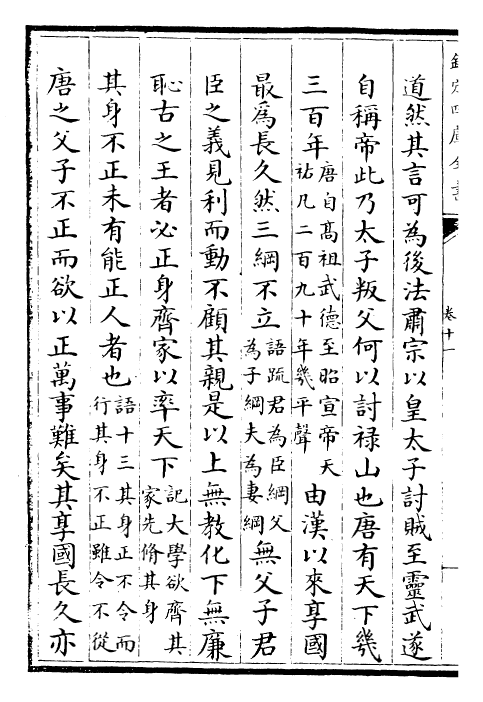 欽定四庫全書
卷十一
道然其言可為後法肅宗以皇太子討賊至靈武遂
自稱帝此乃太子叛父何以討禄山也唐有天下幾
三百年唐自髙祖武德至昭宣帝天祐凡二百九十年幾平聲由漢以來享國
最爲長久然三綱不立語疏君為臣綱父為子綱夫為妻綱無父子君
臣之義見利而動不顧其親是以上無教化下無廉
恥古之王者必正身齊家以率天下記大學欲齊其家先脩其身
其身不正未有能正人者也語十三其身正不令而行其身不正雖令不從
唐之父子不正而欲以正萬事難矣其享國長久亦